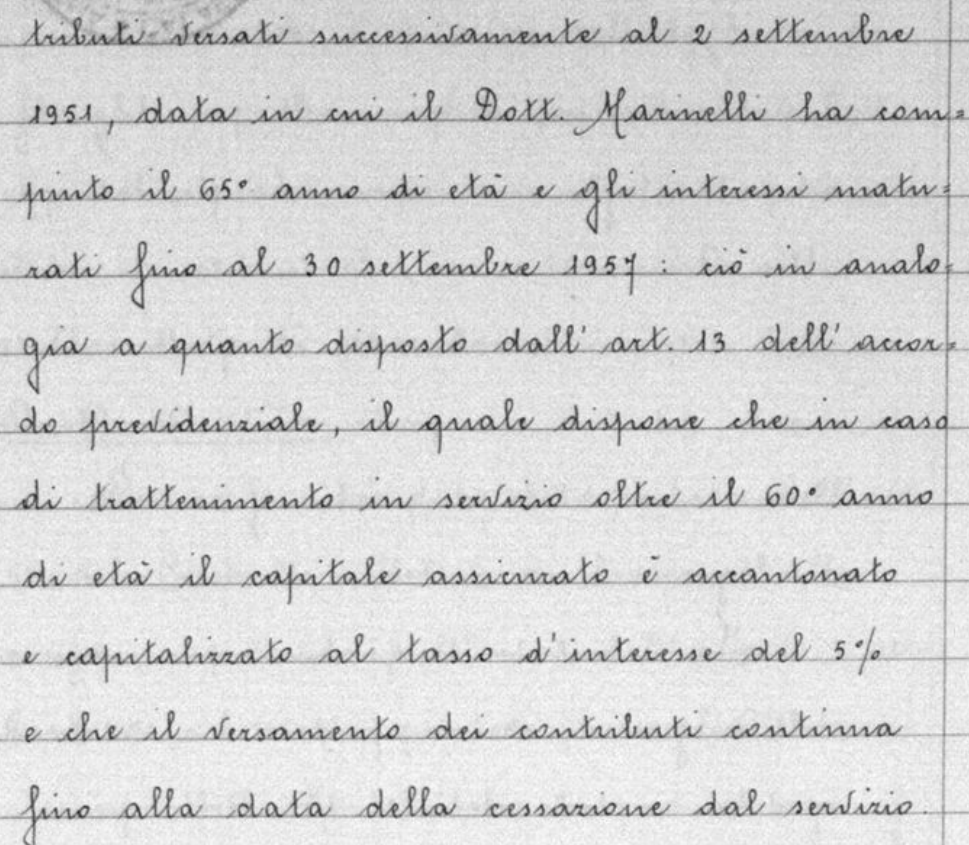 tributi versati successivamente al 2 settembre
1951, data in cui il Dott. Marinelli ha com=
piuto il 65° anno di età e gli interessi matu=
rati fino al 30 settembre 1957: ciò in analo=
gia a quanto disposto dall'art. 13 dell'accor=
do previdenziale, il quale dispone che in caso
di trattenimento in servizio oltre il 60° anno
di età il capitale assicurato è accantonato
e capitalizzato al tasso d'interesse del 5%
e che il versamento dei contributi continua
fino alla data della cessazione dal servizio.